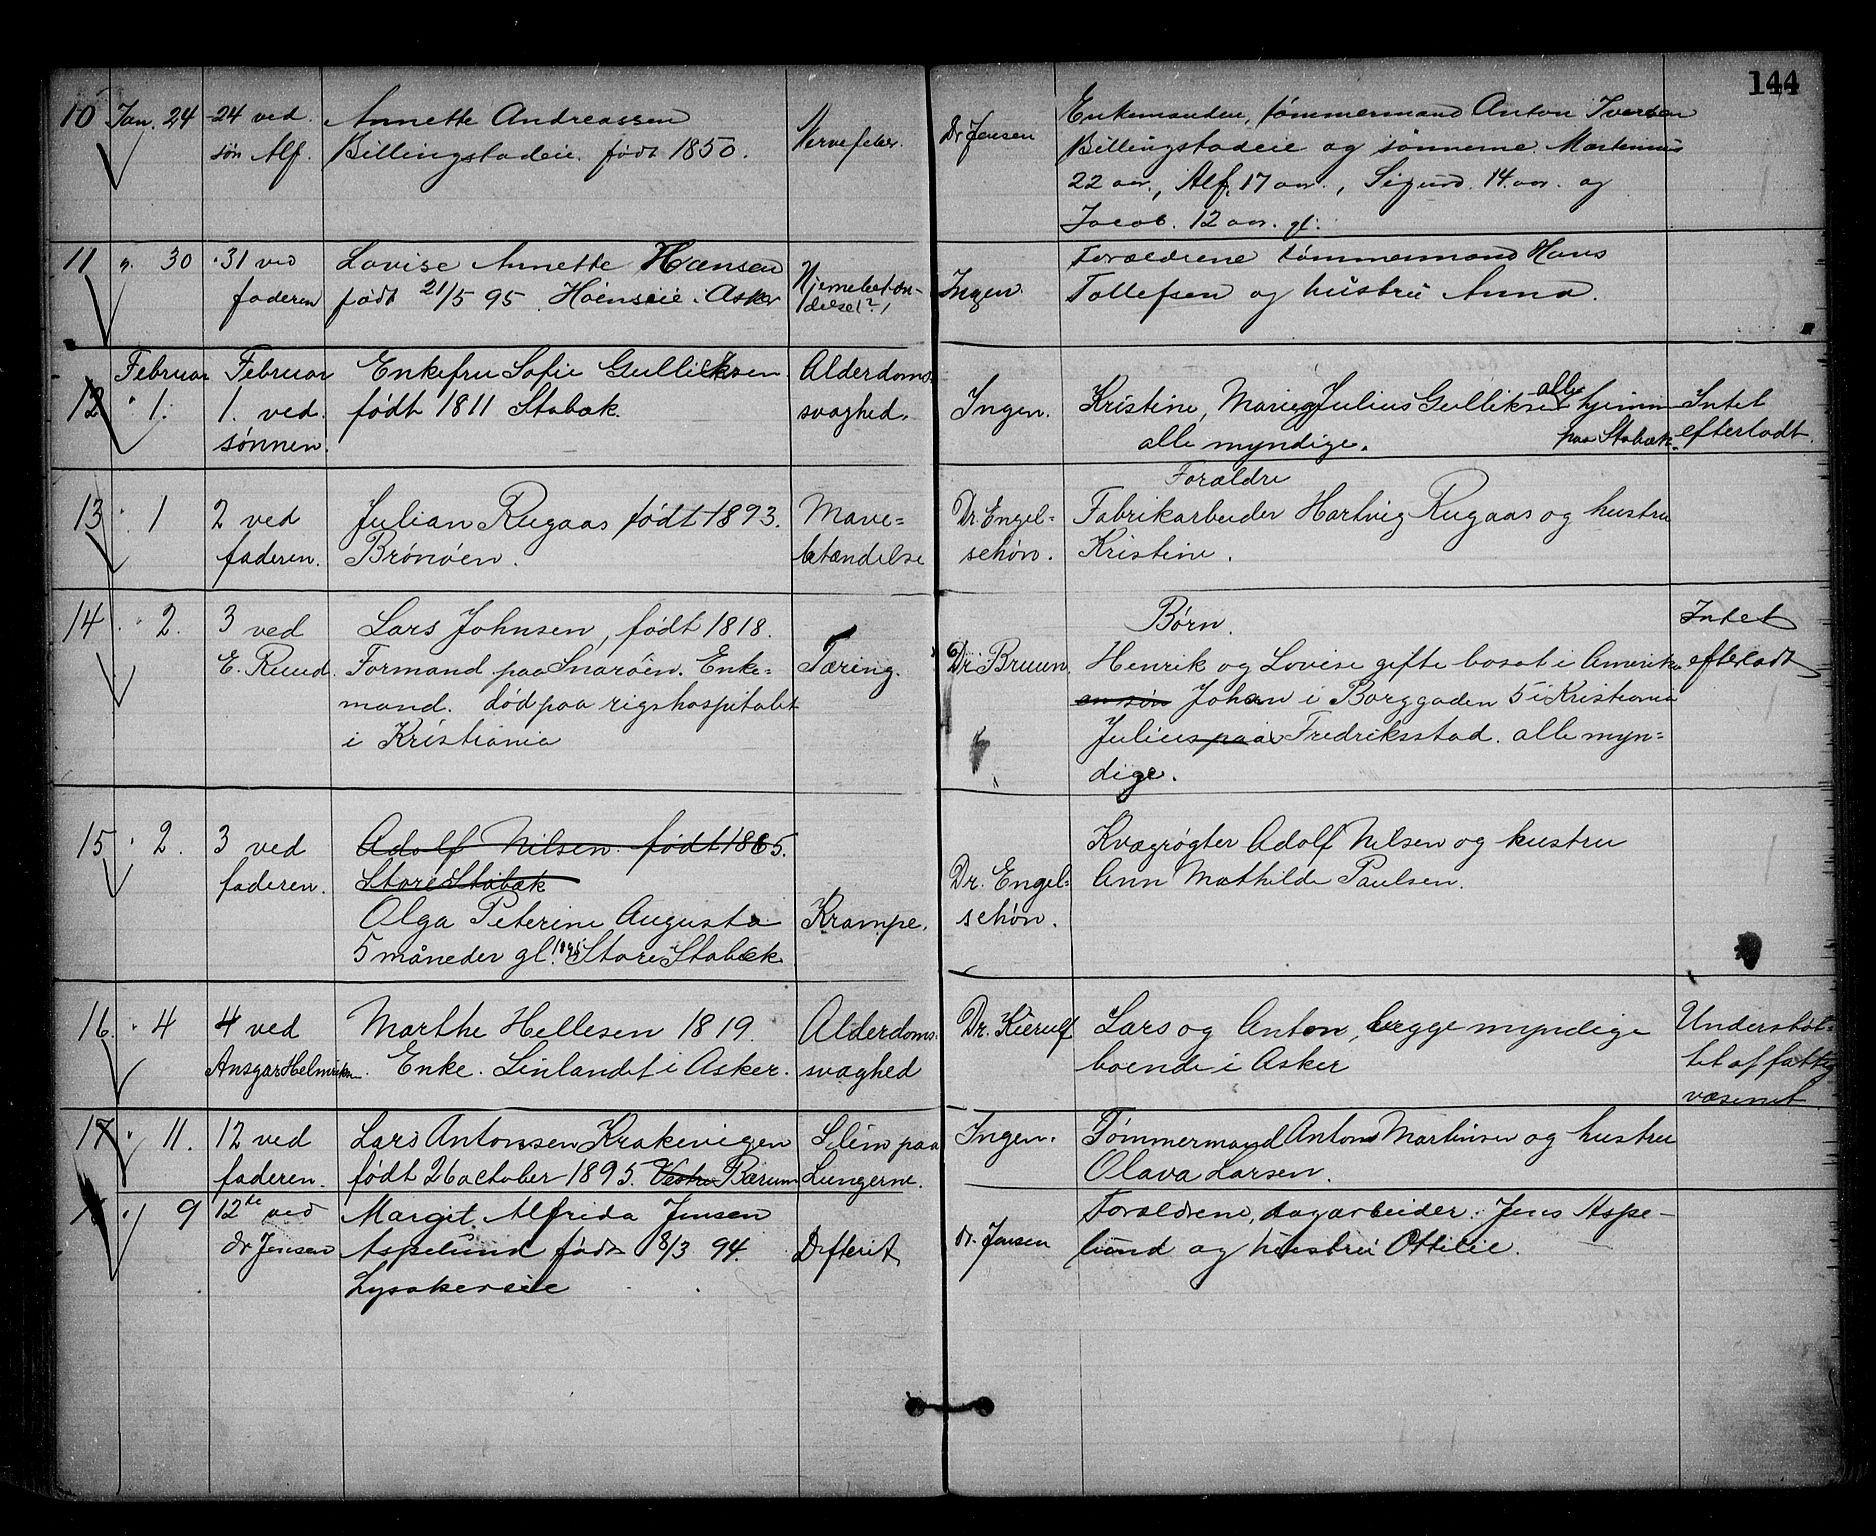 144
10 Jan. 24 24 ved Annette Andreassen Nervefeber. Dr Jensen Enkemanden, tømmermand Anton Iversen
søn Alf. Billingstadeie. født 1850. Billingstadeie og sønnerne. Martinius
22 aar., Alf. 17 aar., Sigurd. 14 aar. og
Jacob. 12 aar. gl.
11 " 30 31 ved Lovise Annette Hansen Hjernebetæn- Ingen. Forældrene tømmermand Hans
faderen født 21/5 95. Høenseie i Asker delse(?) Tollefsen og hustru Anna.
Februar Februar Enkefru Sofie Gulliksen Alderdoms-
12 " 1. 1. ved født 1811 Stabæk. svaghed. Ingen. Kristine, Marie og Julius Gulliksen alle hjemme Intet
sønnen. alle myndige. paa Stabæk. efterladt.
Forældre
13 " 1 2 ved Julian Rugaas født 1893. Mave= Dr. Engel= Fabrikarbeider Hartvig Rugaas og hustru
faderen. Brønøen. betændelse schøn. Kristine.
14 " 2. 3 ved Lars Johnsen, født 1818. Børn. Intet
E. Ruud. Formand paa Snarøen. Enke= Tæring. Dr. Bruun. Henrik og Lovise gifte bosat i Amerika efterladt
mand. død paa rigshospitalet en søn Johan i Borggaden 5 i Kristiania
i Kristiania Julius paa Fredriksstad. alle myn=
dige.
15 " 2. 3 ved Adolf Nilsen født 1865. Kvægrøgter Adolf Nilsen og hustru
faderen. Store Stabæk Dr. Engel= Ann Mathilde Paulsen.
Olga Peterine Augusta Krampe. schøn.
5 måneder gl. 1895 Store Stabæk
16. " 4 4 ved Marthe Hellesen 1819. Alderdoms- Dr. Kierulf Lars og Anton, begge myndige Understøt-
Ansgar Helmriksen. Enke. Linlandet i Asker. svaghed boende i Asker tet af fattig
væsenet
17 " 11. 12 ved Lars Antonsen Krakevigen Slim paa Ingen. Tømmermand Anton Martinsen og hustru
faderen. født 26 october 1895. Vestre Bærum Lungerne. Olava Larsen.
" 9 12te ved Margit Alfrida Jensen Difterit dr. Jensen Forældrene, dagarbeider Jens Aspe-
dr Jensen Aspelund født 8/3 94. lund og hustru Ottilie.
Lysakereie